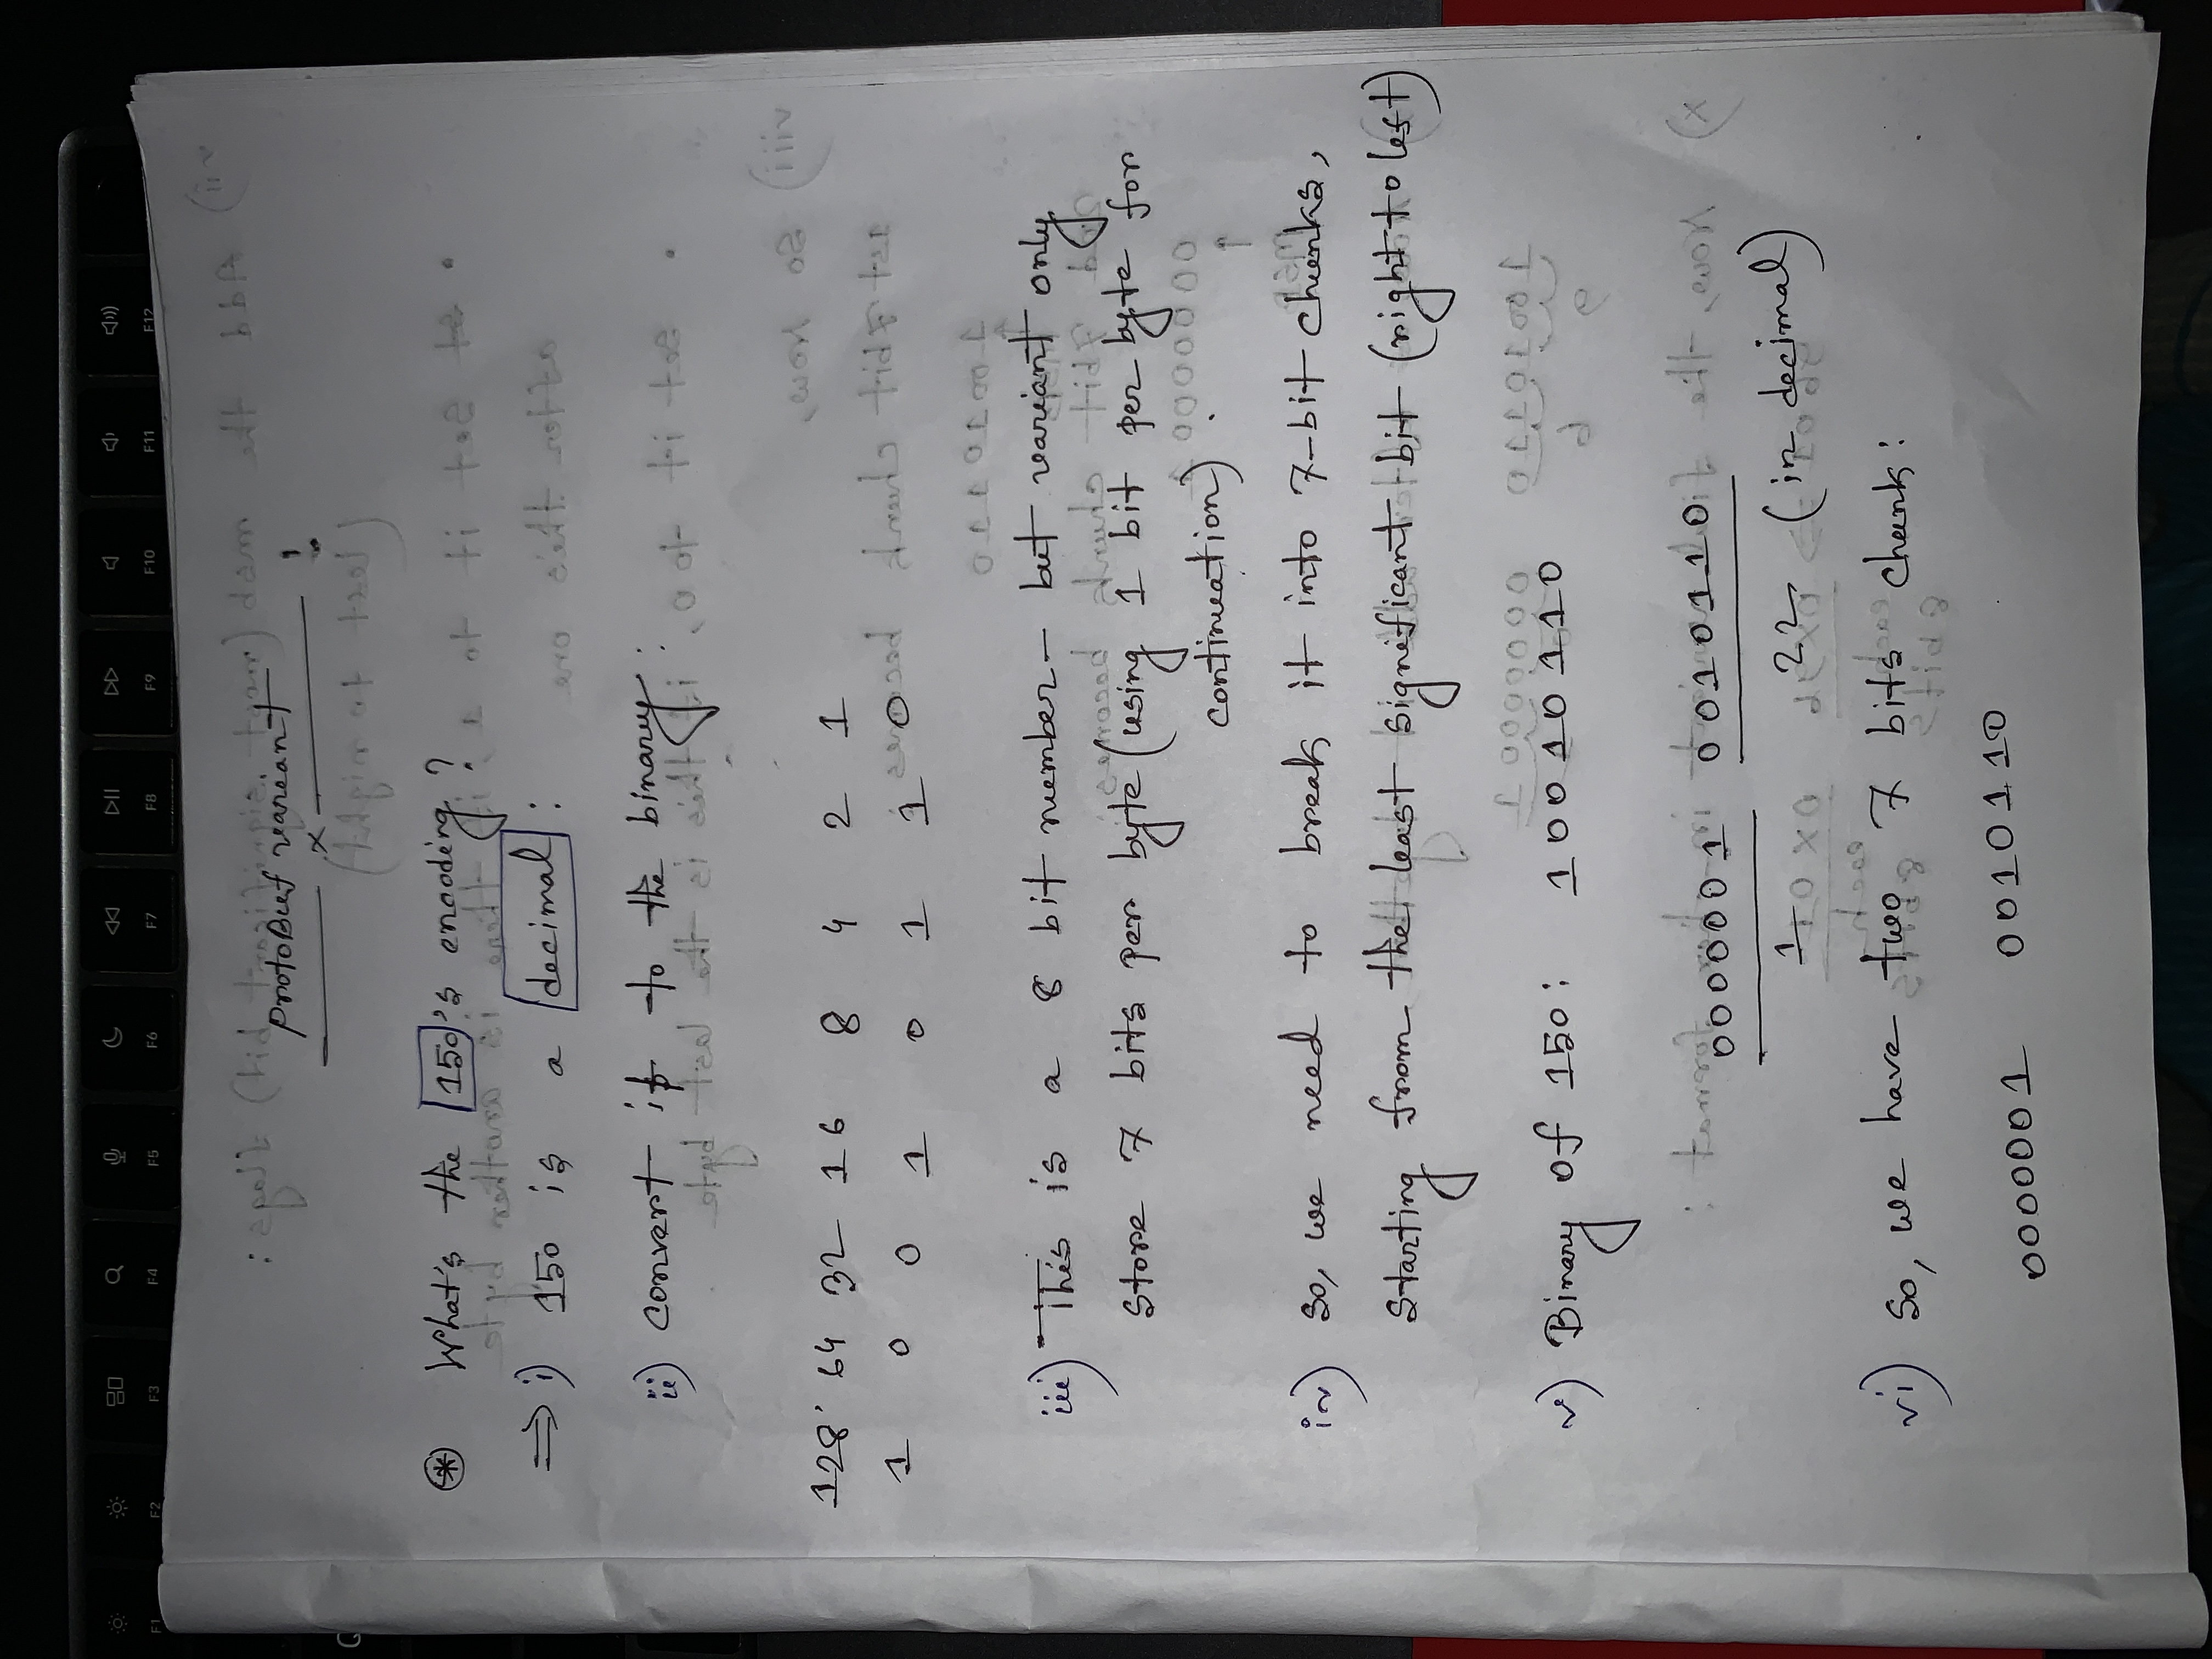 F1 F2 F3 F4 F5 F6 F7 F8 F9 F10 F11 F12
Q
ProtoBuf variant
x
What's the 150's encoding?
⇒ i) 150 is a decimal:
ii) convert it to the binary:
128 64 32 16 8 4 2 1
1 0 0 1 0 1 1 0
iii) This is a 8 bit number - but variant only
store 7 bits per byte (using 1 bit per byte for
continuation).
iv) So, we need to break it into 7-bit chunks,
starting from the least significant bit (right to left)
v) Binary of 150: 10010110
0000001 0010110
1 22 (in decimal)
vi) So, we have two 7 bits chunk:
0000001 0010110